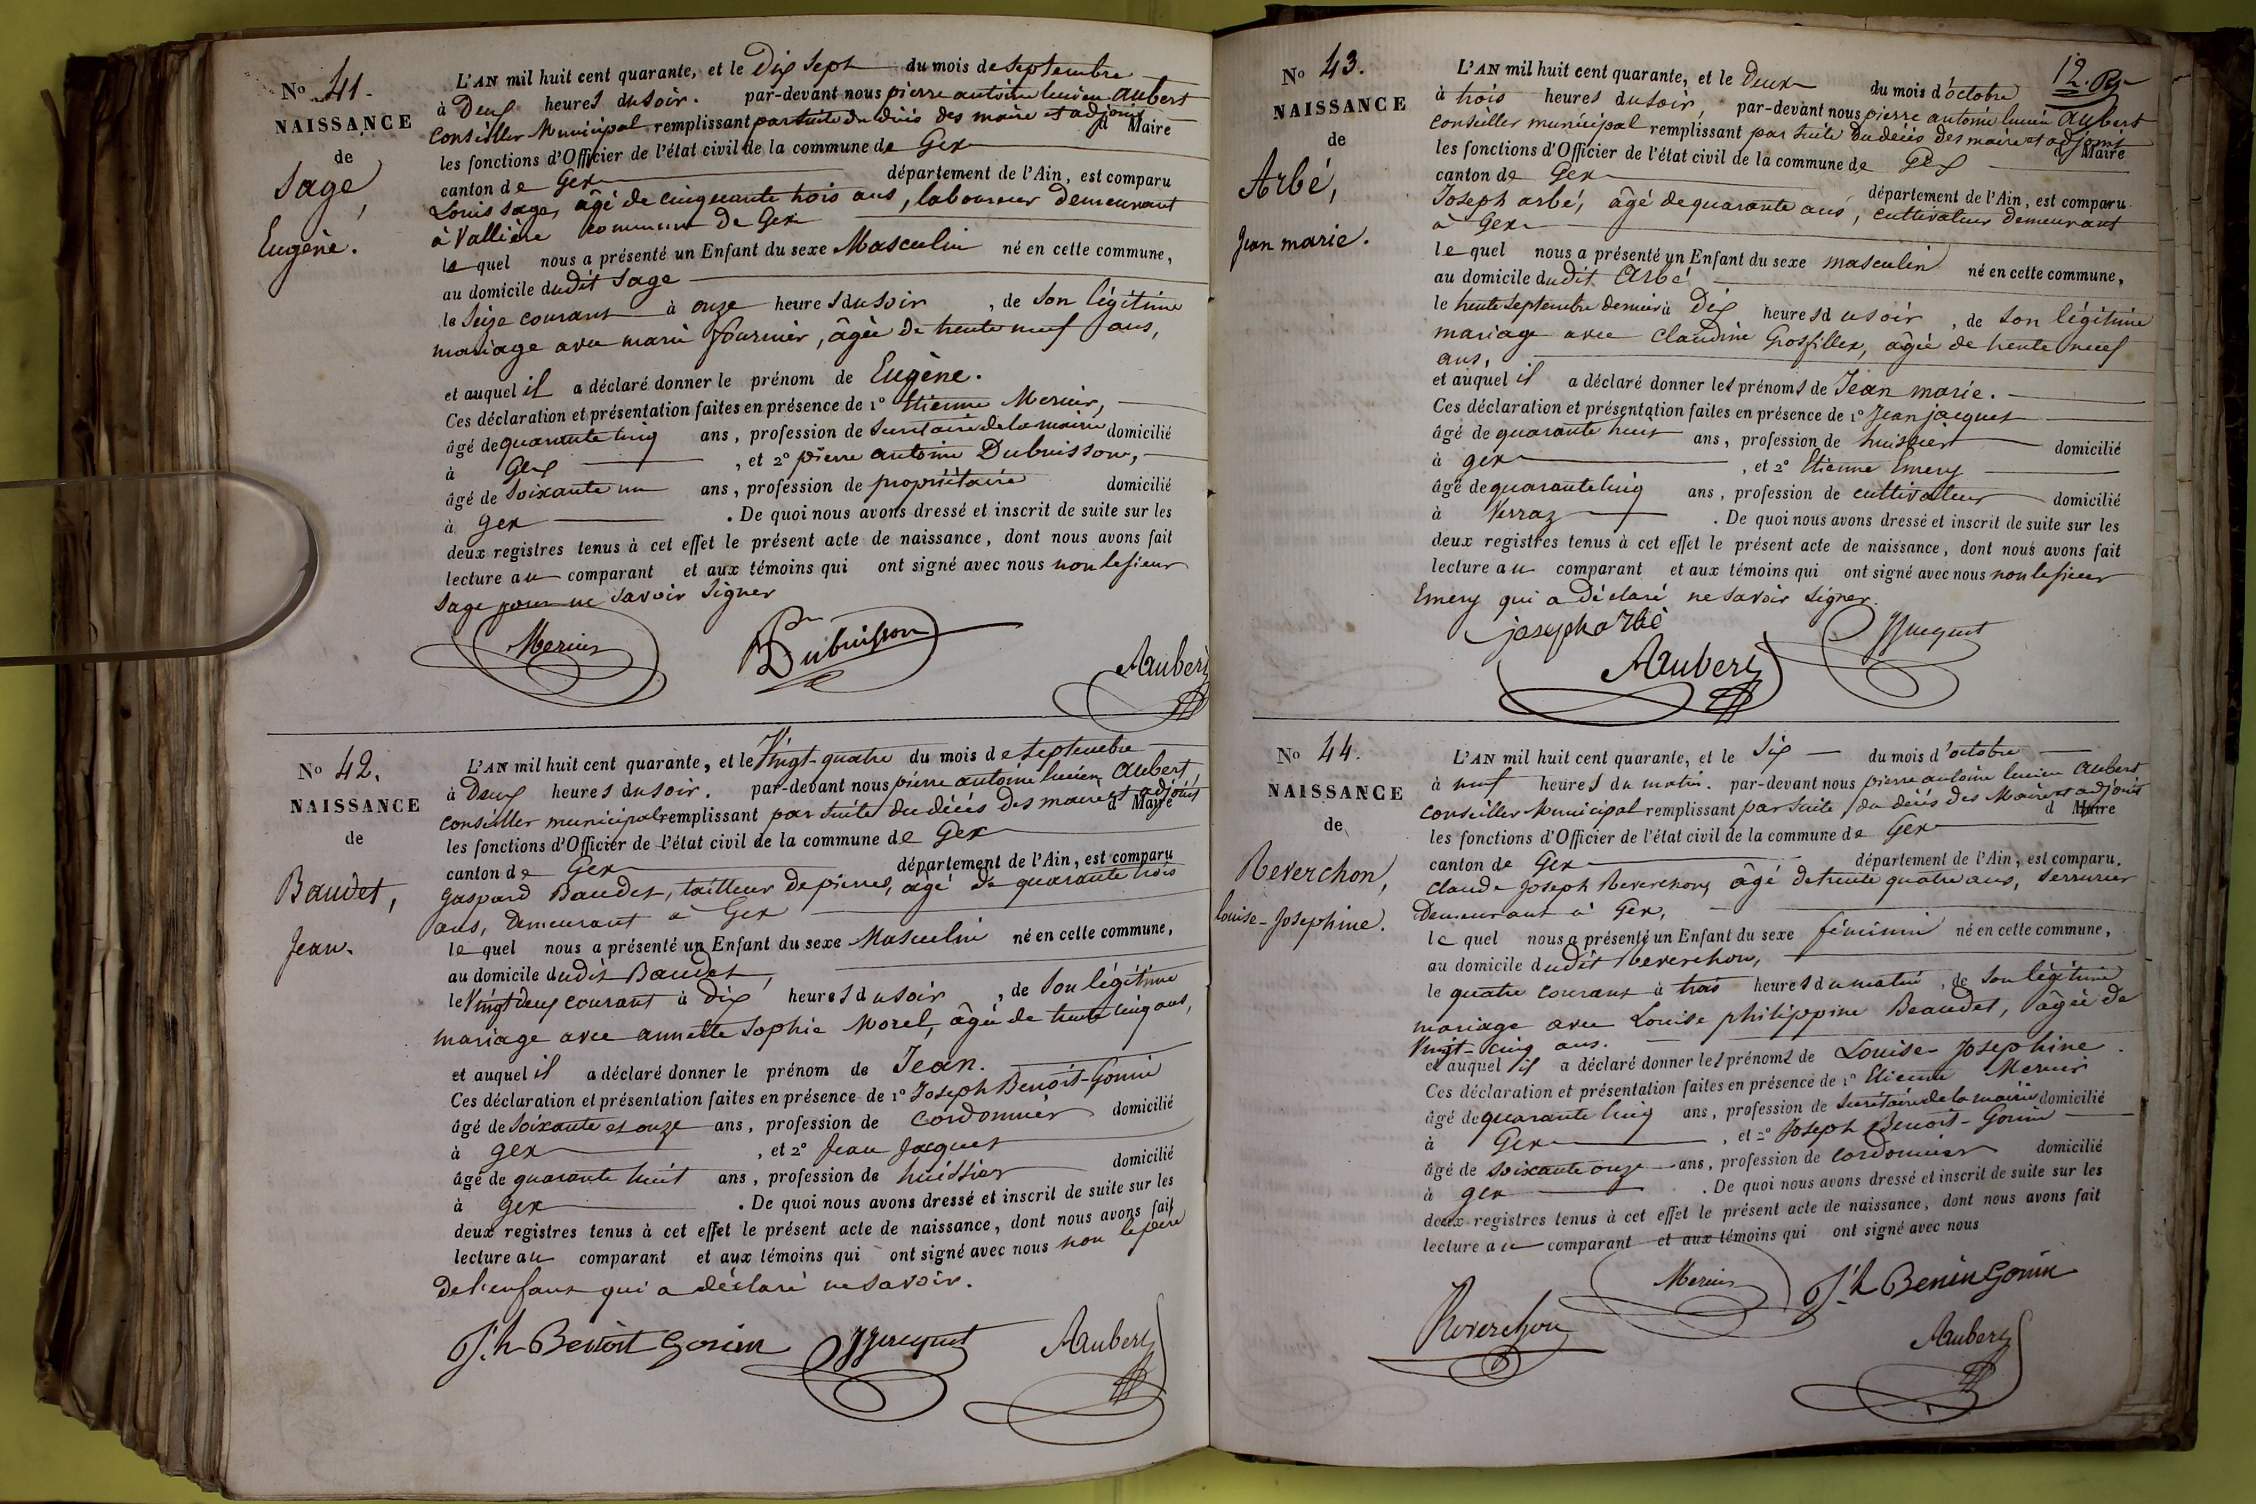 No 41.
NAISSANCE
de
Sage,
Eugène.
L'AN mil huit cent quarante, et le Dix sept du mois de Septembre
à Deux heures du soir. par-devant nous pierre antoine lucien aubert
Conseiller Municipal remplissant par suite du décès des maire et adjoint d Maire
les fonctions d'Officier de l'état civil de la commune de Gex
canton de Gex département de l'Ain, est comparu
Louis Sage, âgé de cinquante trois ans, laboureur demeurant
à Vallière commune de Gex
le quel nous a présenté un Enfant du sexe Masculin né en cette commune,
au domicile dudit Sage
le Seize courant à onze heures du soir, de Son légitime
mariage avec marie fournier, âgée de trente neuf ans,
et auquel il a déclaré donner le prénom de Eugène.
Ces déclaration et présentation faites en présence de 1º Etienne Mercier,
âgé de quarante cinq ans, profession de Secrétaire de la mairie domicilié
à Gex, et 2º pierre antoine Dubuisson,
âgé de Soixante un ans, profession de propriétaire domicilié
à Gex. De quoi nous avons dressé et inscrit de suite sur les
deux registres tenus à cet effet le présent acte de naissance, dont nous avons fait
lecture au comparant et aux témoins qui ont signé avec nous non le sieur
Sage pour ne savoir Signer
Mercier Dubuisson Aubert
No 42.
NAISSANCE
de
Baudet,
Jean.
L'AN mil huit cent quarante, et le Vingt-quatre du mois de Septembre
à Deux heures du soir. par-devant nous pierre antoine lucien Aubert
Conseiller municipal remplissant par suite du décès des maire et adjoint d Maire
les fonctions d'Officier de l'état civil de la commune de Gex
canton de Gex département de l'Ain, est comparu
Gaspard Baudet, tailleur de pierres, âgé de quarante trois
ans, demeurant à Gex
le quel nous a présenté un Enfant du sexe Masculin né en cette commune,
au domicile dudit Baudet,
le Vingt deux courant à Dix heures du soir, de Son légitime
mariage avec annette Sophie Morel, âgée de trente cinq ans,
et auquel il a déclaré donner le prénom de Jean.
Ces déclaration et présentation faites en présence de 1º Joseph Benoit-Gonin
âgé de Soixante et onze ans, profession de Cordonnier domicilié
à Gex, et 2º Jean Jacquet
âgé de quarante huit ans, profession de huissier domicilié
à Gex. De quoi nous avons dressé et inscrit de suite sur les
deux registres tenus à cet effet le présent acte de naissance, dont nous avons fait
lecture au comparant et aux témoins qui ont signé avec nous non le père
de l'enfant qui a déclaré ne savoir.
J.h Benoit Gonin JJacquet Aubert
12.
No 43.
NAISSANCE
de
Arbé,
Jean marie.
L'AN mil huit cent quarante, et le Deux du mois d'octobre
à trois heures du soir, par-devant nous pierre antoine lucien aubert
Conseiller municipal remplissant par suite du décès des maire et adjoint d Maire
les fonctions d'Officier de l'état civil de la commune de Gex
canton de Gex département de l'Ain, est comparu
Joseph arbé, âgé de quarante ans, cultivateur demeurant
à Gex
le quel nous a présenté un Enfant du sexe masculin né en cette commune,
au domicile dudit Arbé
le trente Septembre dernier à Dix heures du soir, de Son légitime
mariage avec Claudine Grosfillex, âgée de trente neuf
ans,
et auquel il a déclaré donner les prénoms de Jean marie.
Ces déclaration et présentation faites en présence de 1º Jean jacquet
âgé de quarante huit ans, profession de huissier domicilié
à Gex, et 2º Etienne Emery
âgé de quarante cinq ans, profession de cultivateur domicilié
à Verraz. De quoi nous avons dressé et inscrit de suite sur les
deux registres tenus à cet effet le présent acte de naissance, dont nous avons fait
lecture au comparant et aux témoins qui ont signé avec nous non le sieur
Emery qui a déclaré ne savoir Signer.
joseph arbé JJacquet
Aubert
No 44.
NAISSANCE
de
Reverchon,
louise-Josephine.
L'AN mil huit cent quarante, et le Six du mois d'octobre
à neuf heures du matin. par-devant nous pierre antoine lucien aubert
Conseiller Municipal remplissant par suite du décès des Maire et adjoint d Maire
les fonctions d'Officier de l'état civil de la commune de Gex
canton de Gex département de l'Ain, est comparu.
Claude Joseph Reverchon, âgé de trente quatre ans, Serrurier
Demeurant à Gex,
le quel nous a présenté un Enfant du sexe féminin né en cette commune,
au domicile dudit Reverchon,
le quatre courant à trois heures du matin, de Son légitime
mariage avec Louise philippine Beaudet, âgée de
Vingt-cinq ans.
et auquel il a déclaré donner les prénoms de Louise Josephine.
Ces déclaration et présentation faites en présence de 1º Etienne Mercier
âgé de quarante cinq ans, profession de Secrétaire de la mairie domicilié
à Gex, et 2º Joseph Benoit-Gonin
âgé de soixante onze ans, profession de cordonnier domicilié
à Gex. De quoi nous avons dressé et inscrit de suite sur les
deux registres tenus à cet effet le présent acte de naissance, dont nous avons fait
lecture au comparant et aux témoins qui ont signé avec nous
Reverchon Mercier J.h Benoit Gonin
Aubert